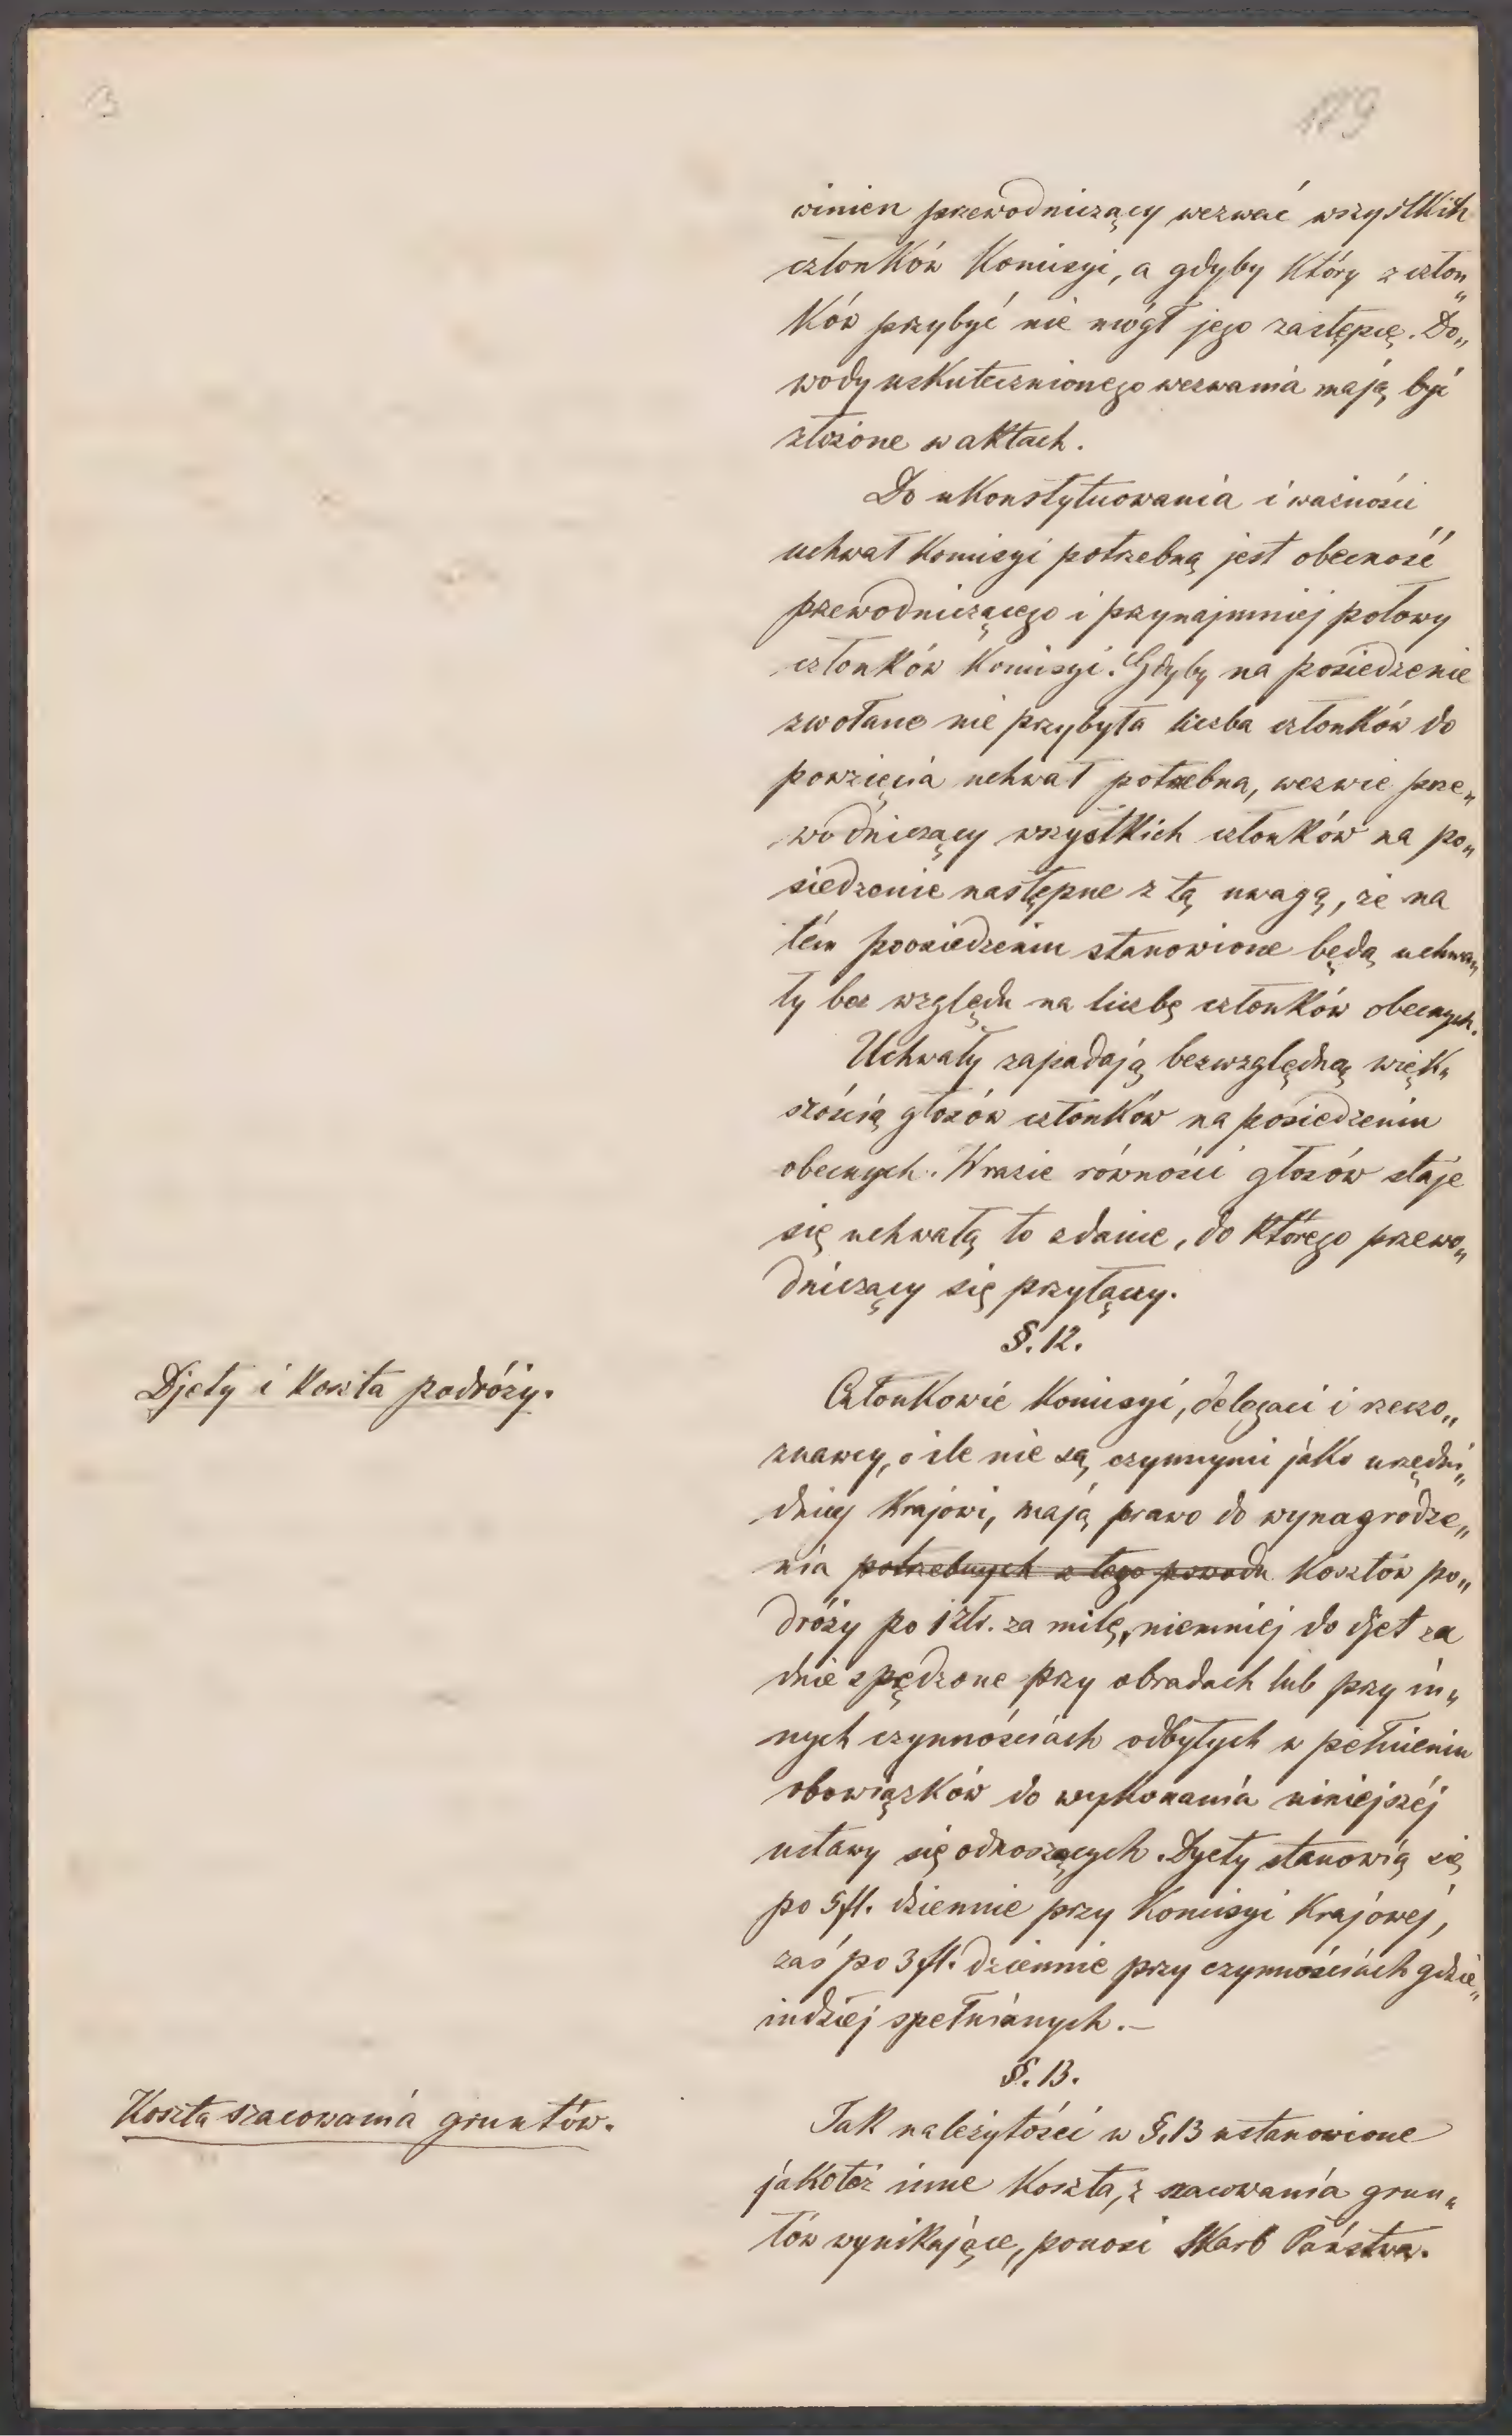 13
119
winien przewodniczący wezwać wszystkich
członków Komisyi, a gdyby który z człon„
ków przybyć nie mógł jego zastępcę. Do„
wody uskutecznionego wezwania mają być
złożone w aktach.
Do ukonstytuowania i ważności
uchwał Komisyi potrzebną jest obecność
przewodniczącego i przynajmniej połowy
członków Komisyi. Gdyby na posiedzenie
zwołane nie przybyła liczba członków do
powzięcia uchwał potrzebna, wezwie prze„
wodniczący wszystkich członków na po„
siedzenie następne z tą uwagą, że na
tém poosiedzeniu stanowione będą uchwa„
ły bez względu na liczbę członków obecnych.
Uchwały zapadają bezwzględną więk„
szością głosów członków na posiedzeniu
obecnych. W razie równości głosów staje
się uchwałą to zdanie, do którego przewo„
dniczący się przyłączy.
§. 12.
Djety i koszta podróży.
Członkowie Komisyi, delegaci i rzeczo„
znawcy, o ile nie są czynnymi jako urzędni„
dnicy Krajowi, mają prawo do wynagrodze„
nia potrzebnych z tego powodu kosztów po„
dróży po 1 złr. za milę, niemniej do djet za
dnie spędzone przy obradach lub przy in„
nych czynnościach odbytych w pełnieniu
obowiązków do wykonania niniejszéj
ustawy się odnoszących. Dyety stanowią się
po 5 fl. dziennie przy Komisyi Krajowej,
zaś po 3 fl. dziennie przy czynnościach gdzie„
indziej spełnianych.—
§. 13.
Koszta szacowania gruntów.
Tak należytości w §. 13 ustanowione
jakoteż inne koszta, z szacowania grun„
tów wynikające, ponosi Skarb Państwa.